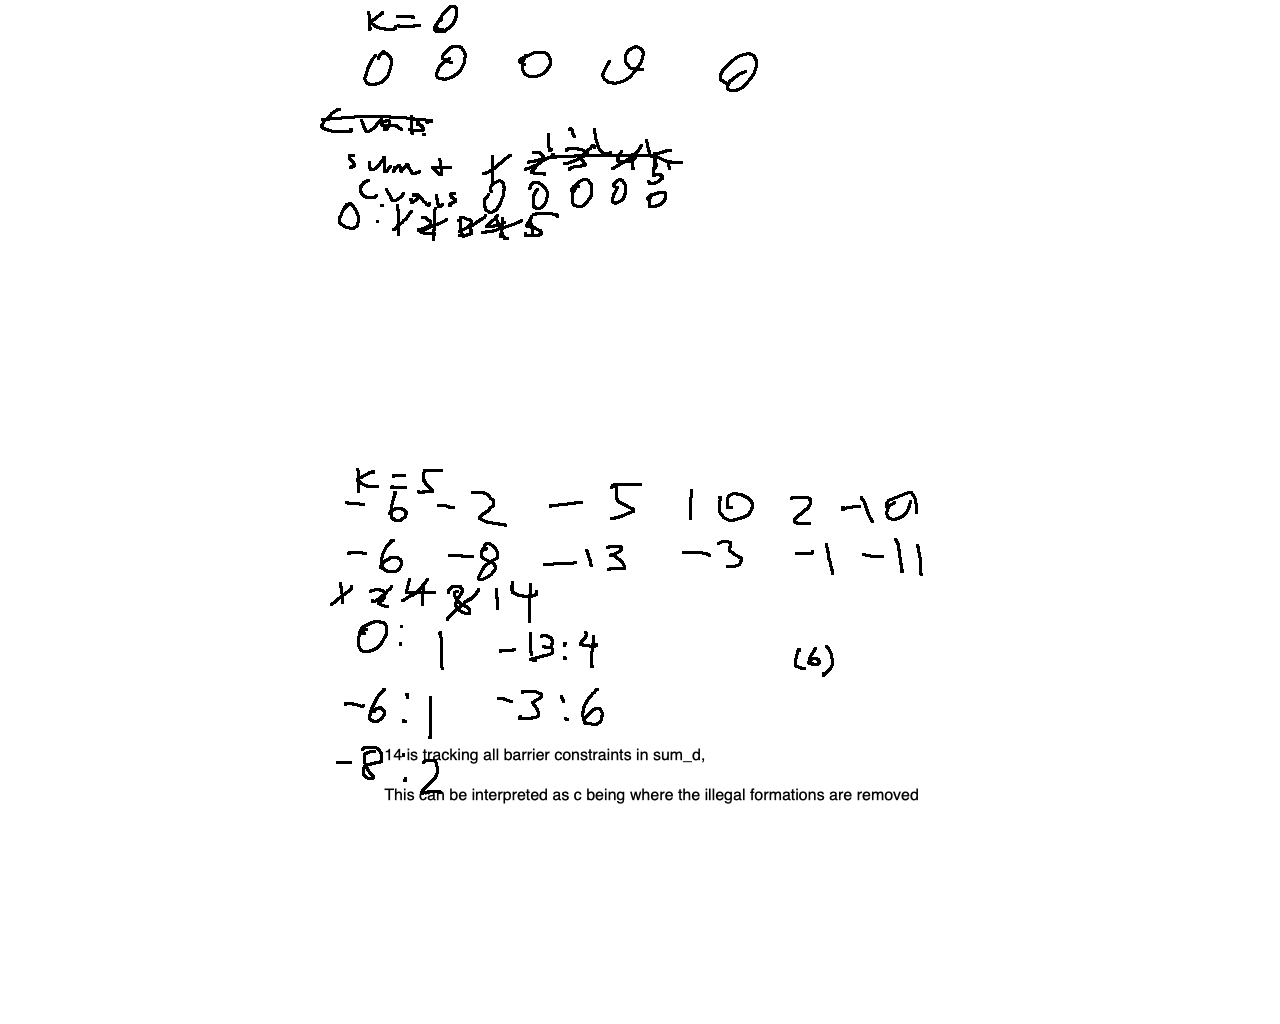 K = 0
0 0 0 0 0
Cvals
sum + 1 2 3 4 5
C.vals 0 0 0 0 0
0 : 1 2 3 4 5
K = 5
-6 -2 -5 10 2 -10
-6 -8 -13 -3 -1 -11
1 2 4 8 14
0 : 1 -13 : 4
(6)
-6 : 1 -3 : 6
-8 : 2
14 is tracking all barrier constraints in sum_d,
This can be interpreted as c being where the illegal formations are removed